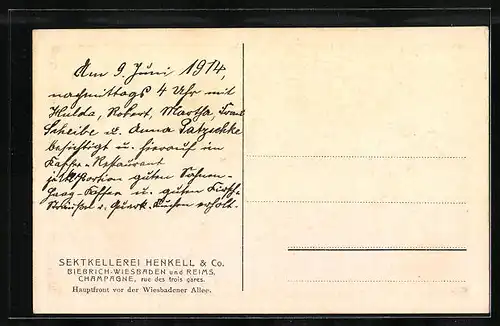 Am 9. Juni 1914,
nachmittags 4 Uhr mit
Hulda, Robert, Martha, Frau
Scheibe u. Anna Patzschke
besichtigt u. hierauf im
Kaffee-Restaurant
Portion guten Sahnen-
Kaffee u. guten Kirsch-
Streußel u. Quark-Kuchen erhollt.
SEKTKELLEREI HENKELL & Co.
BIEBRICH-WIESBADEN und REIMS,
CHAMPAGNE, rue des trois gares.
Hauptfront vor der Wiesbadener Allee.